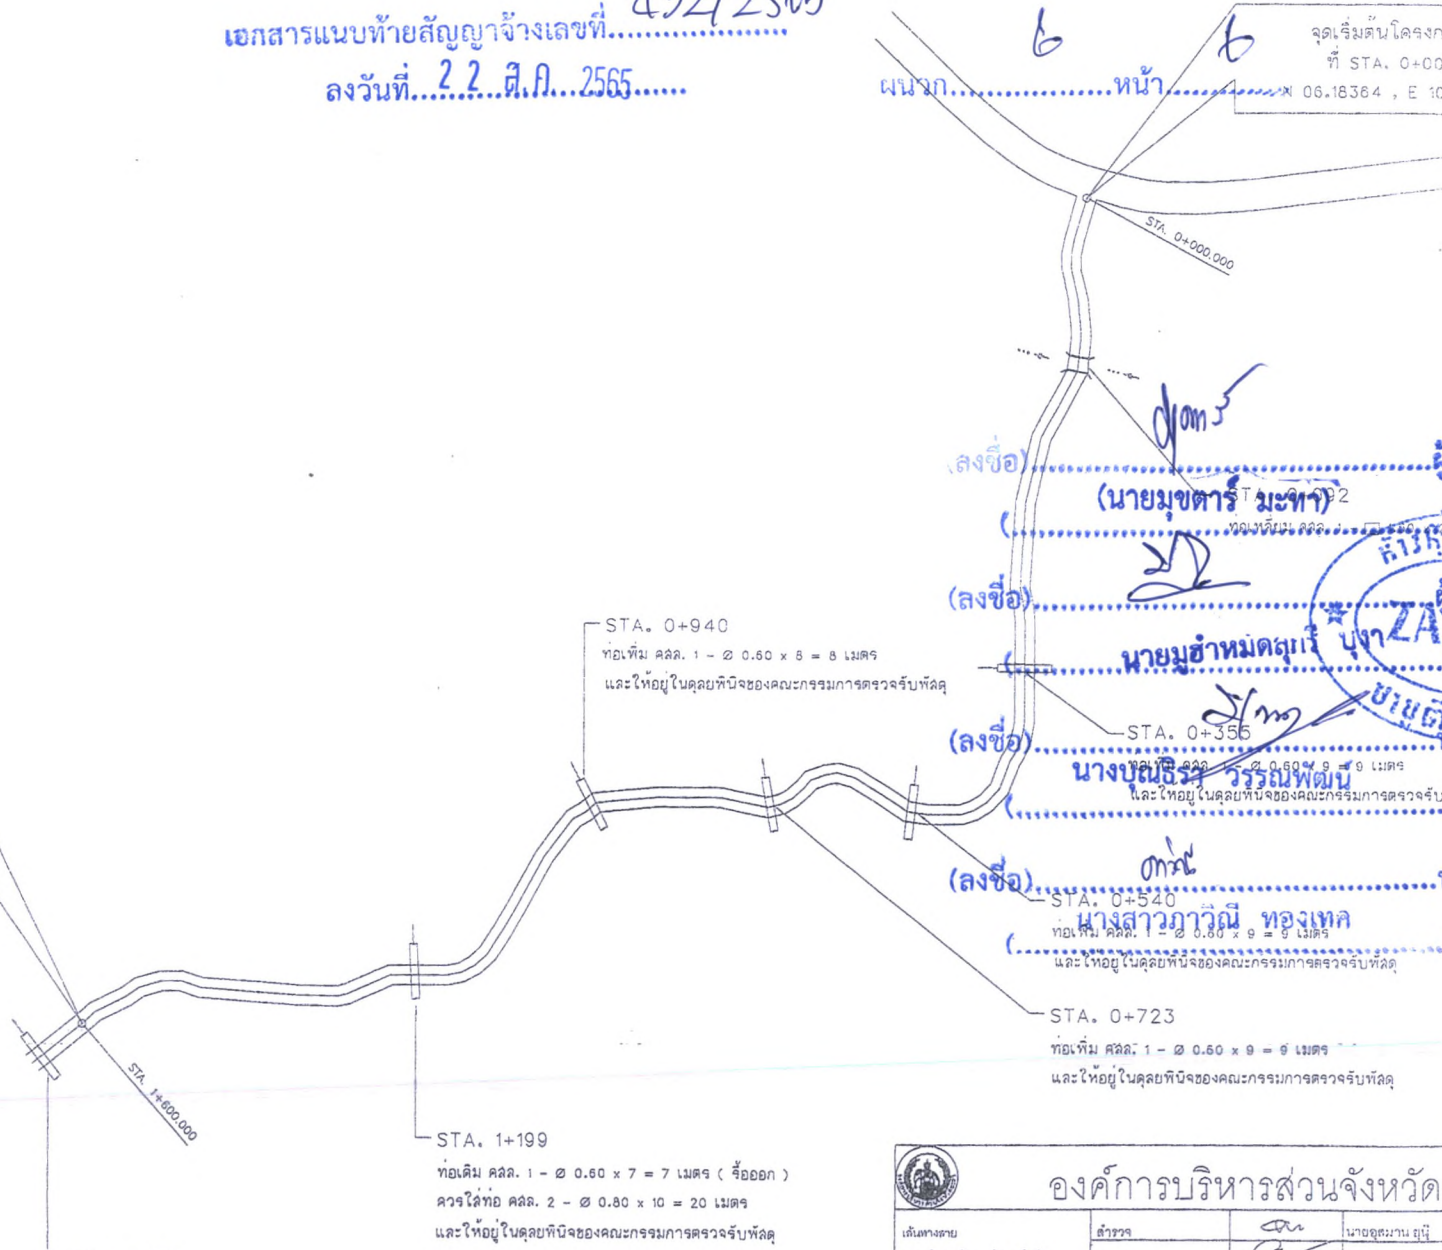 เอกสารแนบท้ายสัญญาจ้างเลขที่
ลงวันที่ 22 ส.ค. 2565
ผนวก 6 หน้า 6
จุดเริ่มต้นโครงกา
ที่ STA. 0+00
N 06.18364 , E 10
STA. 0+000.000
(ลงชื่อ)
(นายมุขตาร์ มะทา)
STA. 0+092
ท่อเหลี่ยม คสล. 1 -
(ลงชื่อ)
นายมูฮำหมัดสุกรี บุงา
STA. 0+940
ท่อเพิ่ม คสล. 1 - Ø 0.60 x 8 = 8 เมตร
และให้อยู่ในดุลยพินิจของคณะกรรมการตรวจรับพัสดุ
(ลงชื่อ)
STA. 0+355
ท่อเพิ่ม คสล. 1 - Ø 0.60 x 9 = 9 เมตร
นางบุณธิรา วรรณพัฒน์
และให้อยู่ในดุลยพินิจของคณะกรรมการตรวจรับ
(ลงชื่อ)
STA. 0+540
นางสาวภาวิณี ทองเทศ
ท่อเพิ่ม คสล. 1 - Ø 0.60 x 9 = 9 เมตร
และให้อยู่ในดุลยพินิจของคณะกรรมการตรวจรับพัสดุ
STA. 0+723
ท่อเพิ่ม คสล. 1 - Ø 0.60 x 9 = 9 เมตร
และให้อยู่ในดุลยพินิจของคณะกรรมการตรวจรับพัสดุ
STA. 1+600.000
STA. 1+199
ท่อเดิม คสล. 1 - Ø 0.60 x 7 = 7 เมตร ( รื้อออก )
ควรใส่ท่อ คสล. 2 - Ø 0.80 x 10 = 20 เมตร
และให้อยู่ในดุลยพินิจของคณะกรรมการตรวจรับพัสดุ
องค์การบริหารส่วนจังหวัด
เส้นทางสาย
สำรวจ
นายอุสมาน ยูนุ๊